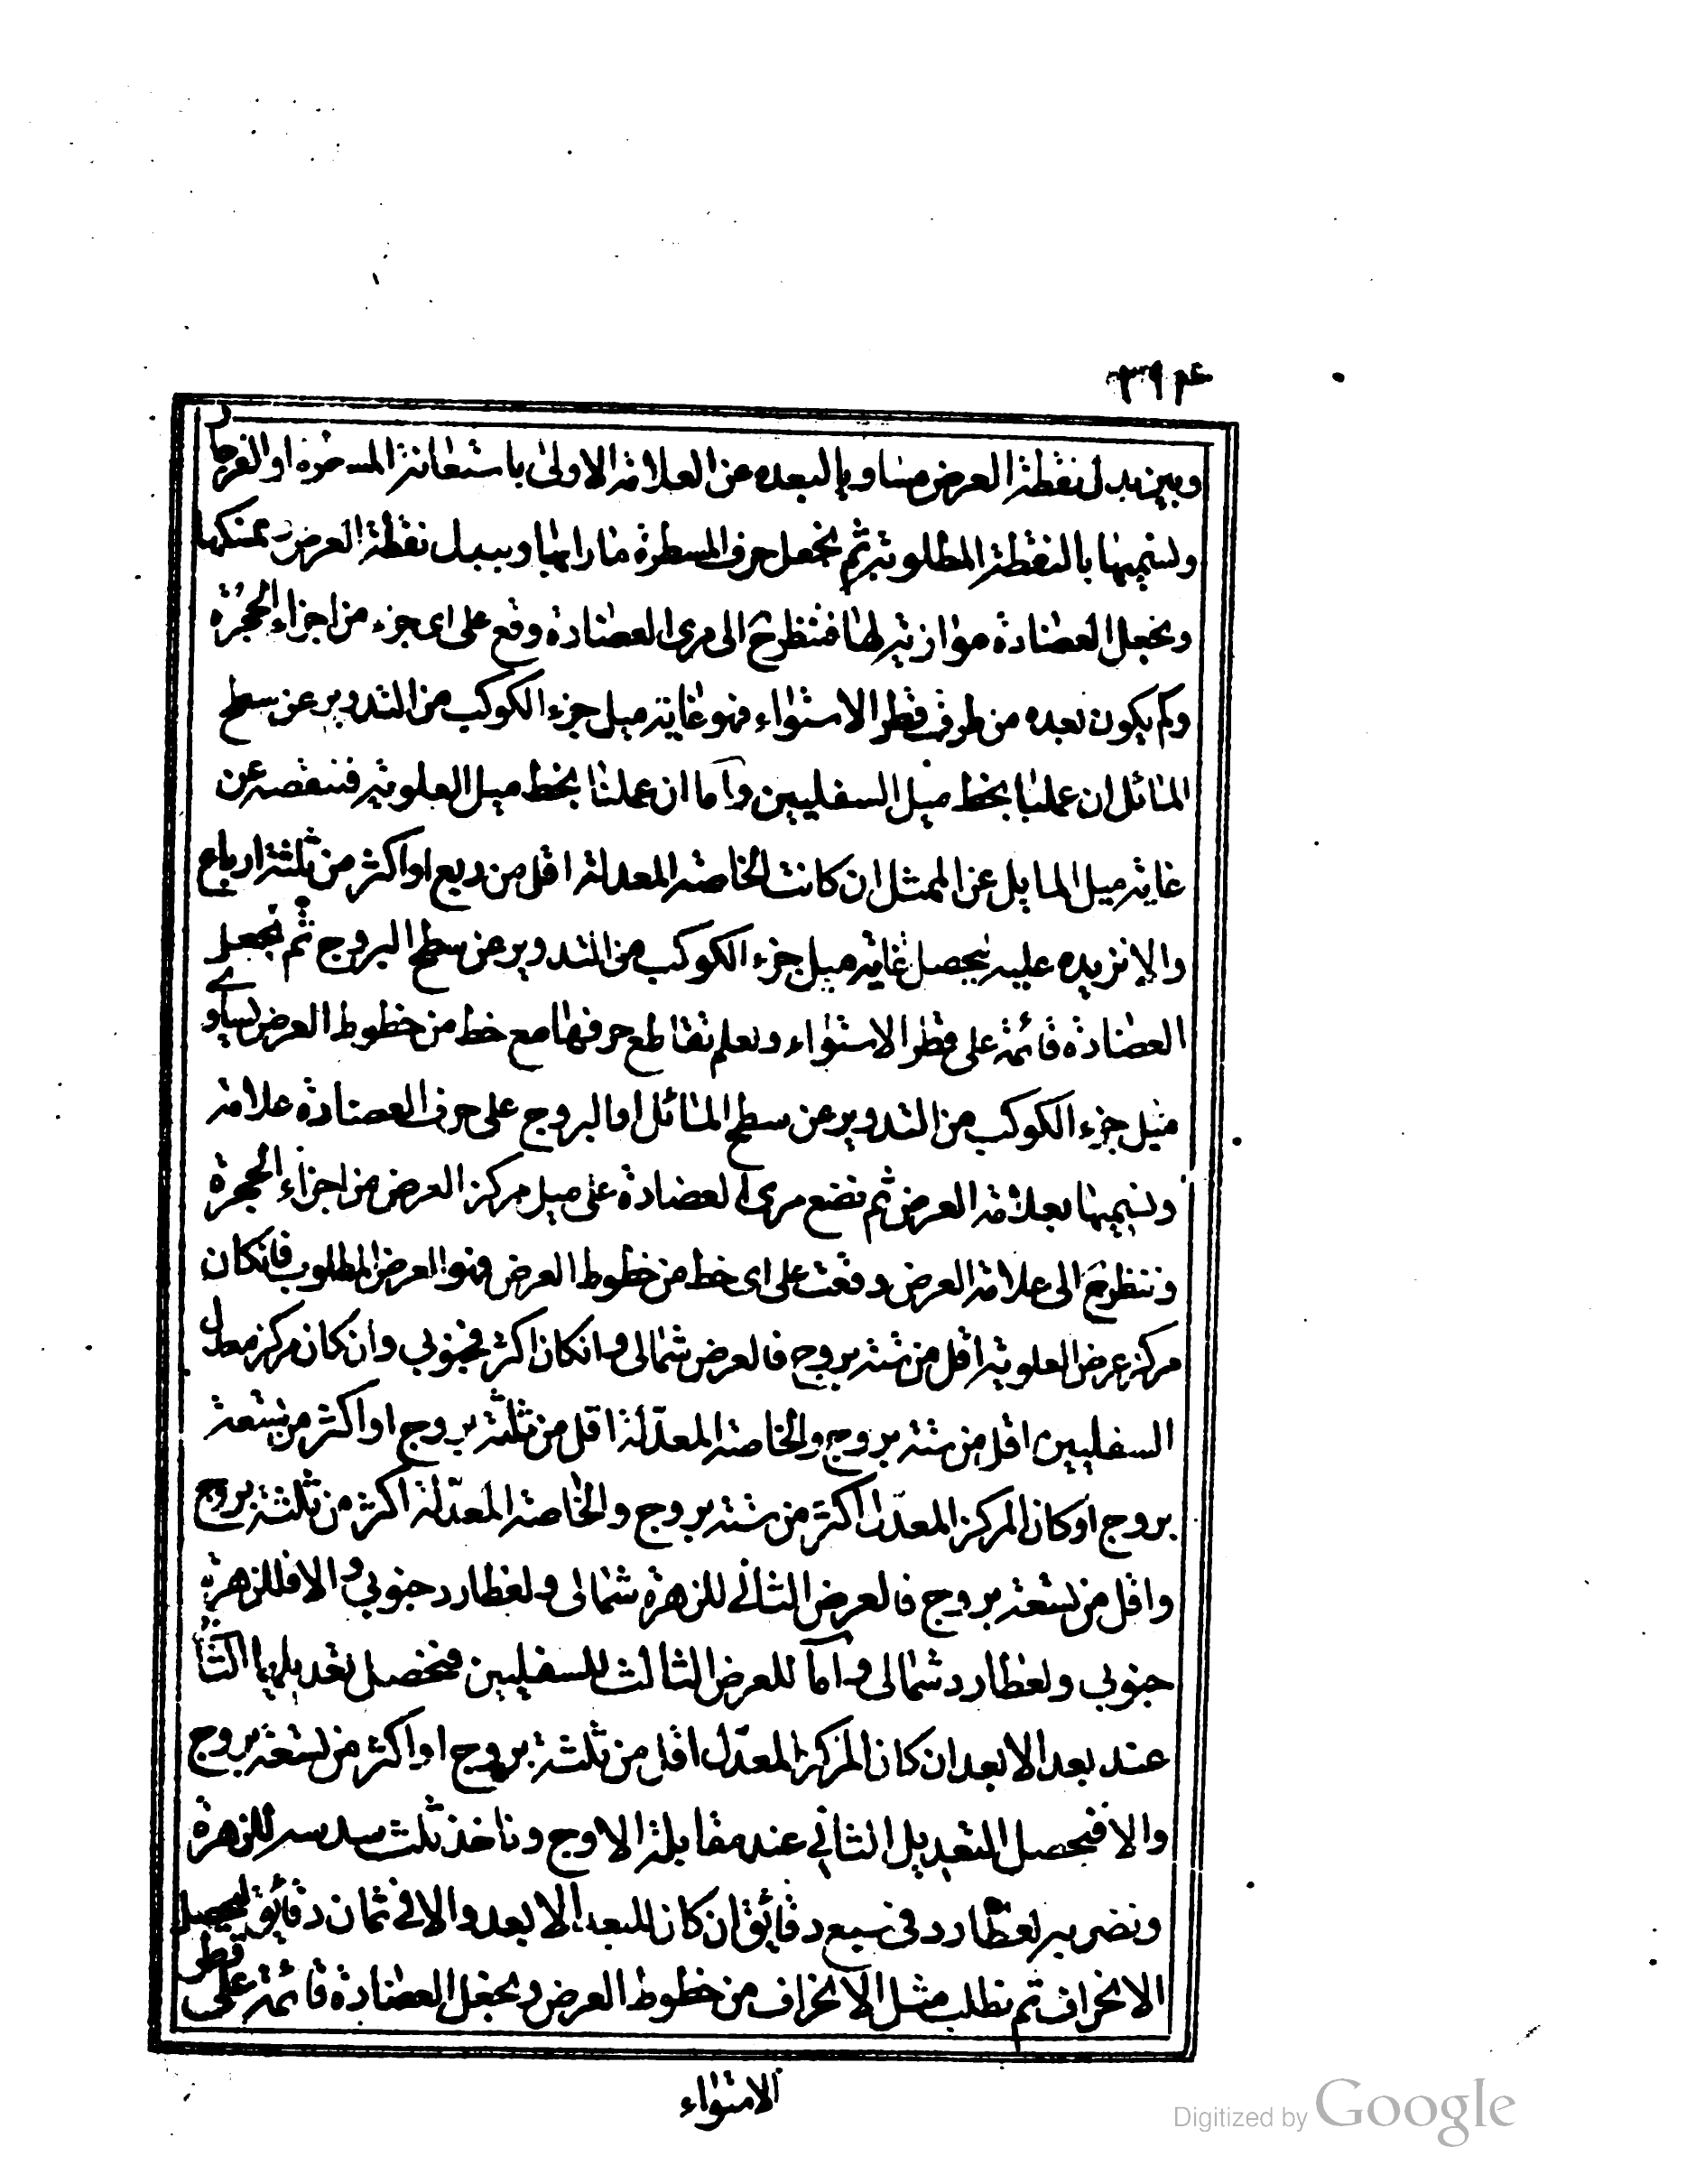 وبين بدل نقطة العرض مساويا لبعده عن العلامة الاولى باستعانة المسطرة او الفرجار
ونسميها بالنقطة المطلوبة ثم نجعل حرف المسطرة مارا بها وببدل نقطة العرض ونمسكها
ونجعل العضادة موازية لها فننظر ح الى مرى العضادة وقع على اى جزء من اجزاء الحجرة
وكم يكون بعده من طرف قطر الاستواء فهو غاية ميل جزء الكوكب من التدوير عن سطح
المائل ان عملنا بخط ميل السفليين وآما ان عملنا بخط ميل العلوية فننقصه عن
غاية ميل المايل عن الممثل ان كانت الخاصة المعدلة اقل من ربع او اكثر من ثلثة ارباع
والا نزيده عليه يحصل غاية ميل جزء الكوكب من التدوير عن سطح البروج ثم نجعل
العضادة قائمة على قطر الاستواء ونعلم تقاطع حرفها مع خط من خطوط العرض يساوى
ميل جزء الكوكب من التدوير عن سطح المائل او البروج على حرف العضادة علامة
ونسميها بعلامة العرض ثم نضع مرى العضادة على ميل مركز العرض من اجزاء الحجرة
وننظر ح الى علامة العرض وقعت على اى خط من خطوط العرض فهو العرض المطلوب فانكان
مركز عرض العلوية اقل من ستة بروج فالعرض شمالى وانكان اكثر فجنوبى وان كان مركز معدل
السفليين اقل من ستة بروج والخاصة المعدّلة اقل من ثلثة بروج او اكثر من تسعة
بروج او كان المركز المعدّل اكثر من ستة بروج والخاصة المعدّلة اكثر من ثلثة بروج
واقل من تسعة بروج فالعرض الثانى للزهرة شمالى ولعطارد جنوبى والا فللزهرة
جنوبى ولعطارد شمالى وآما للعرض الثالث للسفليين فنحصل تعديلهما الثانى
عند بعد الابعد ان كان المركز المعدّل اقل من ثلثة بروج او اكثر من تسعة بروج
والا فنحصل التعديل الثانى عند مقابلة الاوج وناخذ ثلث سدسه للزهرة
ونضربه لعطارد فى سبع دقائق ان كان للبعد الابعد والا فى ثمان دقائق ليحصل
الانحراف ثم نطلب مثل الانحراف من خطوط العرض ونجعل العضادة قائمة على قطر
الاستواء
Digitized by Google